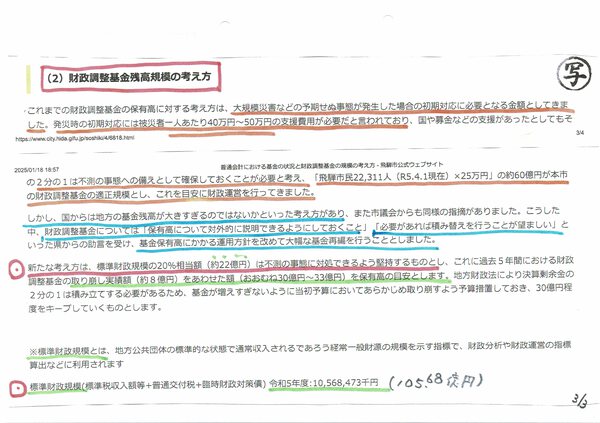 （2）財政調整基金残高規模の考え方
写
これまでの財政調整基金の保有高に対する考え方は、大規模災害などの予期せぬ事態が発生した場合の初期対応に必要となる金額としてきま
した。発災時の初期対応には被災者一人あたり40万円～50万円の支援費用が必要だと言われており、国や募金などの支援があったとしてもそ
https://www.city.hida.gifu.jp/soshiki/4/6818.html
3/4
2025/01/18 18:57
普通会計における基金の状況と財政調整基金の規模の考え方 - 飛騨市公式ウェブサイト
の２分の１は不測の事態への備えとして確保しておくことが必要と考え、「飛騨市民22,311人（R5.4.1現在）×25万円」の約60億円が本市
の財政調整基金の適正規模とし、これを目安に財政運営を行ってきました。
しかし、国からは地方の基金残高が大きすぎるのではないかといった考え方があり、また市議会からも同様の指摘がありました。こうした
中、財政調整基金については「保有高について対外的に説明できるようにしておくこと」「必要があれば積み替えを行うことが望ましい」と
いった県からの助言を受け、基金保有高にかかる運用方針を改めて大幅な基金再編を行うこととしました。
新たな考え方は、標準財政規模の20％相当額（約22億円）は不測の事態に対処できるよう堅持するものとし、これに過去５年間における財政
調整基金の取り崩し実績額（約８億円）をあわせた額（おおむね30億円～33億円）を保有高の目安とします。地方財政法により決算剰余金の
２分の１は積み立てする必要があるため、基金が増えすぎないように当初予算においてあらかじめ取り崩すよう予算措置しておき、30億円程
度をキープしていくものとします。
※標準財政規模とは、地方公共団体の標準的な状態で通常収入されるであろう経常一般財源の規模を示す指標で、財政分析や財政運営の指標
算出などに利用されます
標準財政規模(標準税収入額等+普通交付税+臨時財政対策債) 令和5年度:10,568,473千円 （105.68億円）
3/3